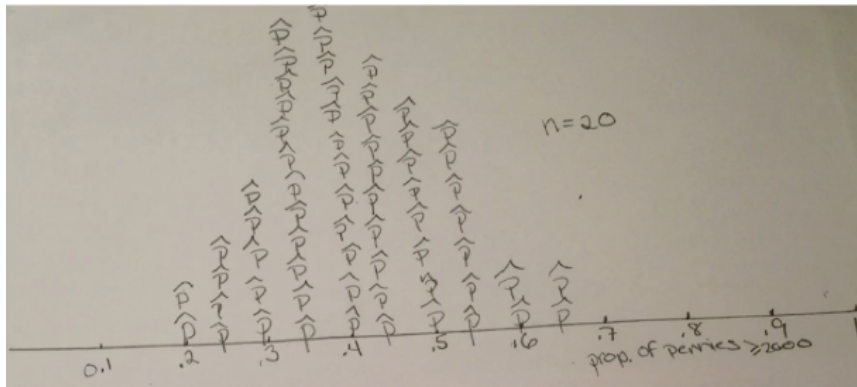 n=20
0.1 .2 .3 .4 .5 .6 .7 .8 .9
prop. of pennies ≥2000